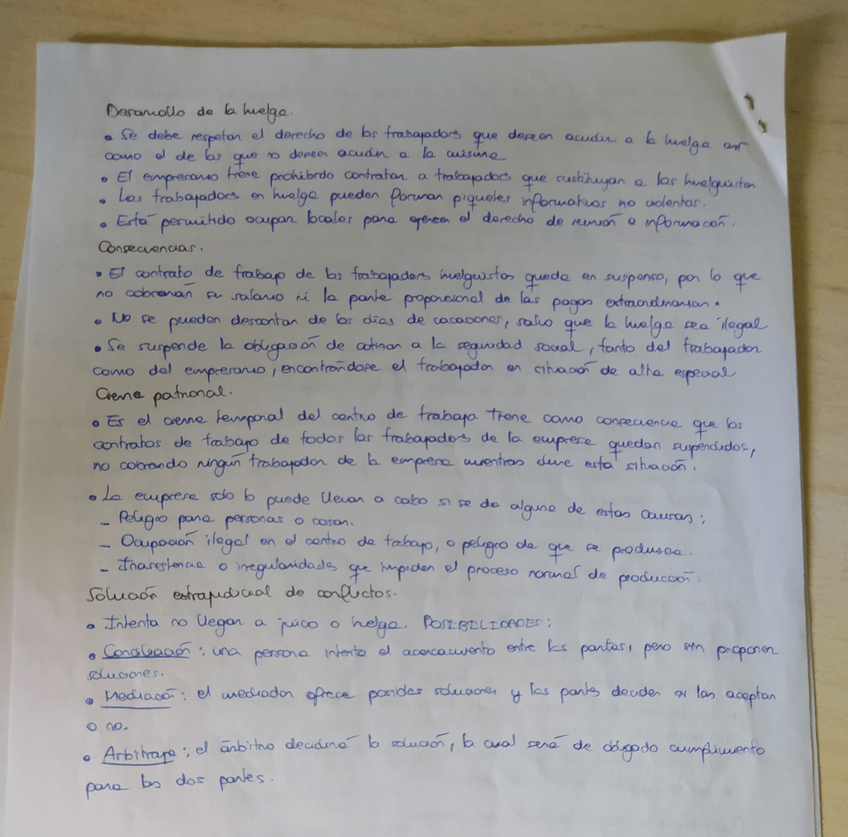 Desarrollo de la huelga.
• Se debe respetar el derecho de los trabajadores que deseen acudir a la huelga así
como el de los que no deseen acudir a la misma
• El empresario tiene prohibido contratar a trabajadores que sustituyan a los huelguistas
• Los trabajadores en huelga pueden formar piquetes informativos no violentos.
• Está permitido ocupar locales para ejercer el derecho de reunión e información.
Consecuencias.
• El contrato de trabajo de los trabajadores huelguistas queda en suspenso, por lo que
no cobrarán su salario ni la parte proporcional de las pagas extraordinarias.
• No se pueden descontar de los días de vacaciones, salvo que la huelga sea ilegal
• Se suspende la obligación de cotizar a la seguridad social, tanto del trabajador
como del empresario, encontrándose el trabajador en situación de alta especial
Cierre patronal.
• Es el cierre temporal del centro de trabajo. Tiene como consecuencia que los
contratos de trabajo de todos los trabajadores de la empresa quedan suspendidos,
no cobrando ningún trabajador de la empresa mientras dure esta situación.
• La empresa solo lo puede llevar a cabo si se da alguna de estas causas:
– Peligro para personas o cosas.
– Ocupación ilegal en el centro de trabajo, o peligro de que se produzca.
– Inasistencia o irregularidades que impiden el proceso normal de producción.
Solución extrajudicial de conflictos.
• Intenta no llegar a juicio o huelga. POSIBILIDADES:
• Conciliación: una persona intenta el acercamiento entre las partes, pero sin proponer
soluciones.
• Mediación: el mediador ofrece posibles soluciones y las partes deciden si las aceptan
o no.
• Arbitraje: el árbitro decidirá la solución, la cual será de obligado cumplimiento
para las dos partes.